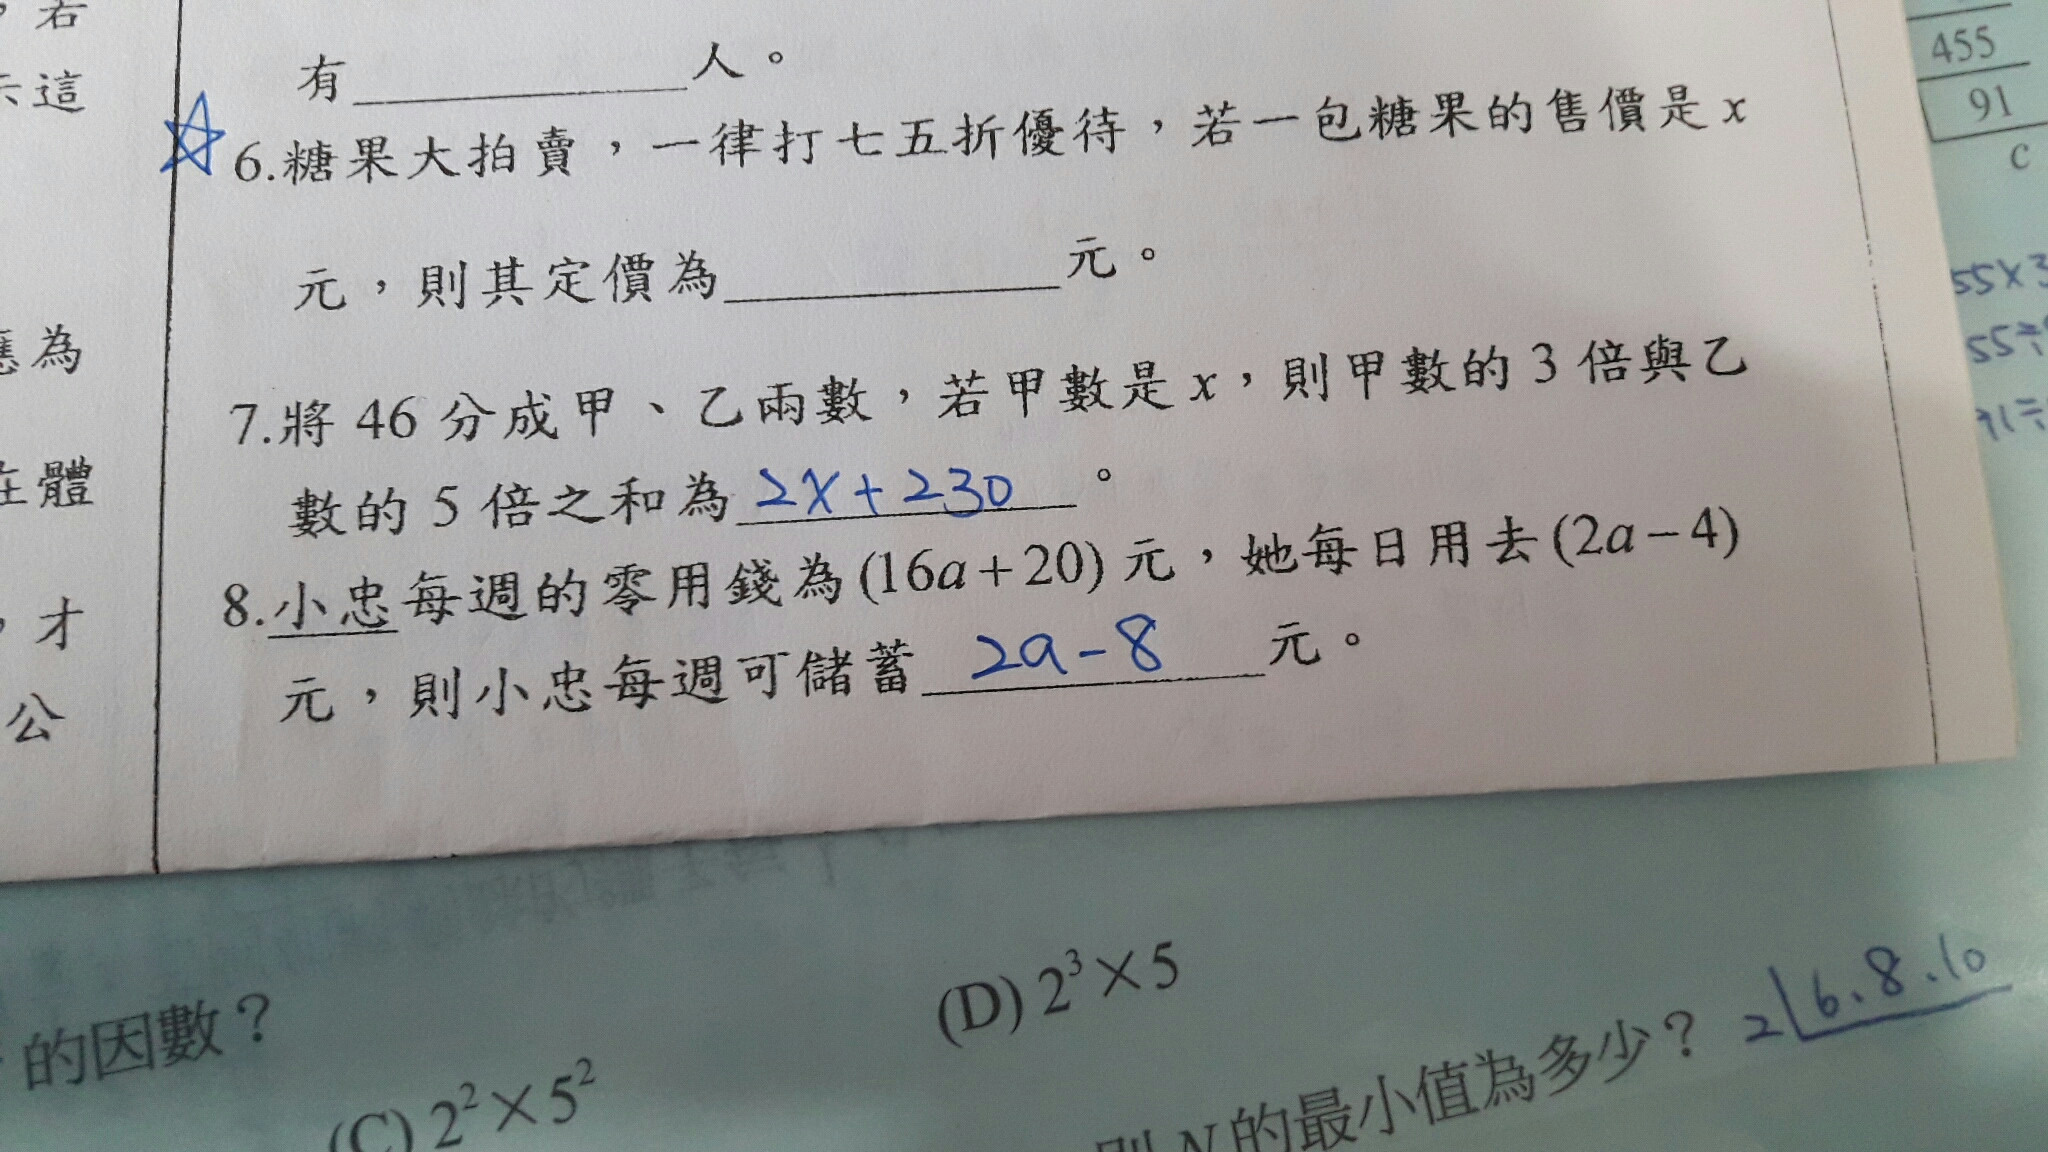 若
示這
應為
在體
，才
公
有 人。
6.糖果大拍賣，一律打七五折優待，若一包糖果的售價是 x
元，則其定價為 元。
7.將 46 分成甲、乙兩數，若甲數是 x，則甲數的 3 倍與乙
數的 5 倍之和為 2x+230 。
8.小忠每週的零用錢為(16a+20) 元，她每日用去(2a-4)
元，則小忠每週可儲蓄 2a-8 元。
455
91
c
55×3
55÷
91÷
的因數？
(C) 2²×5²
(D) 2³×5
則 N 的最小值為多少？
2 6.8.10